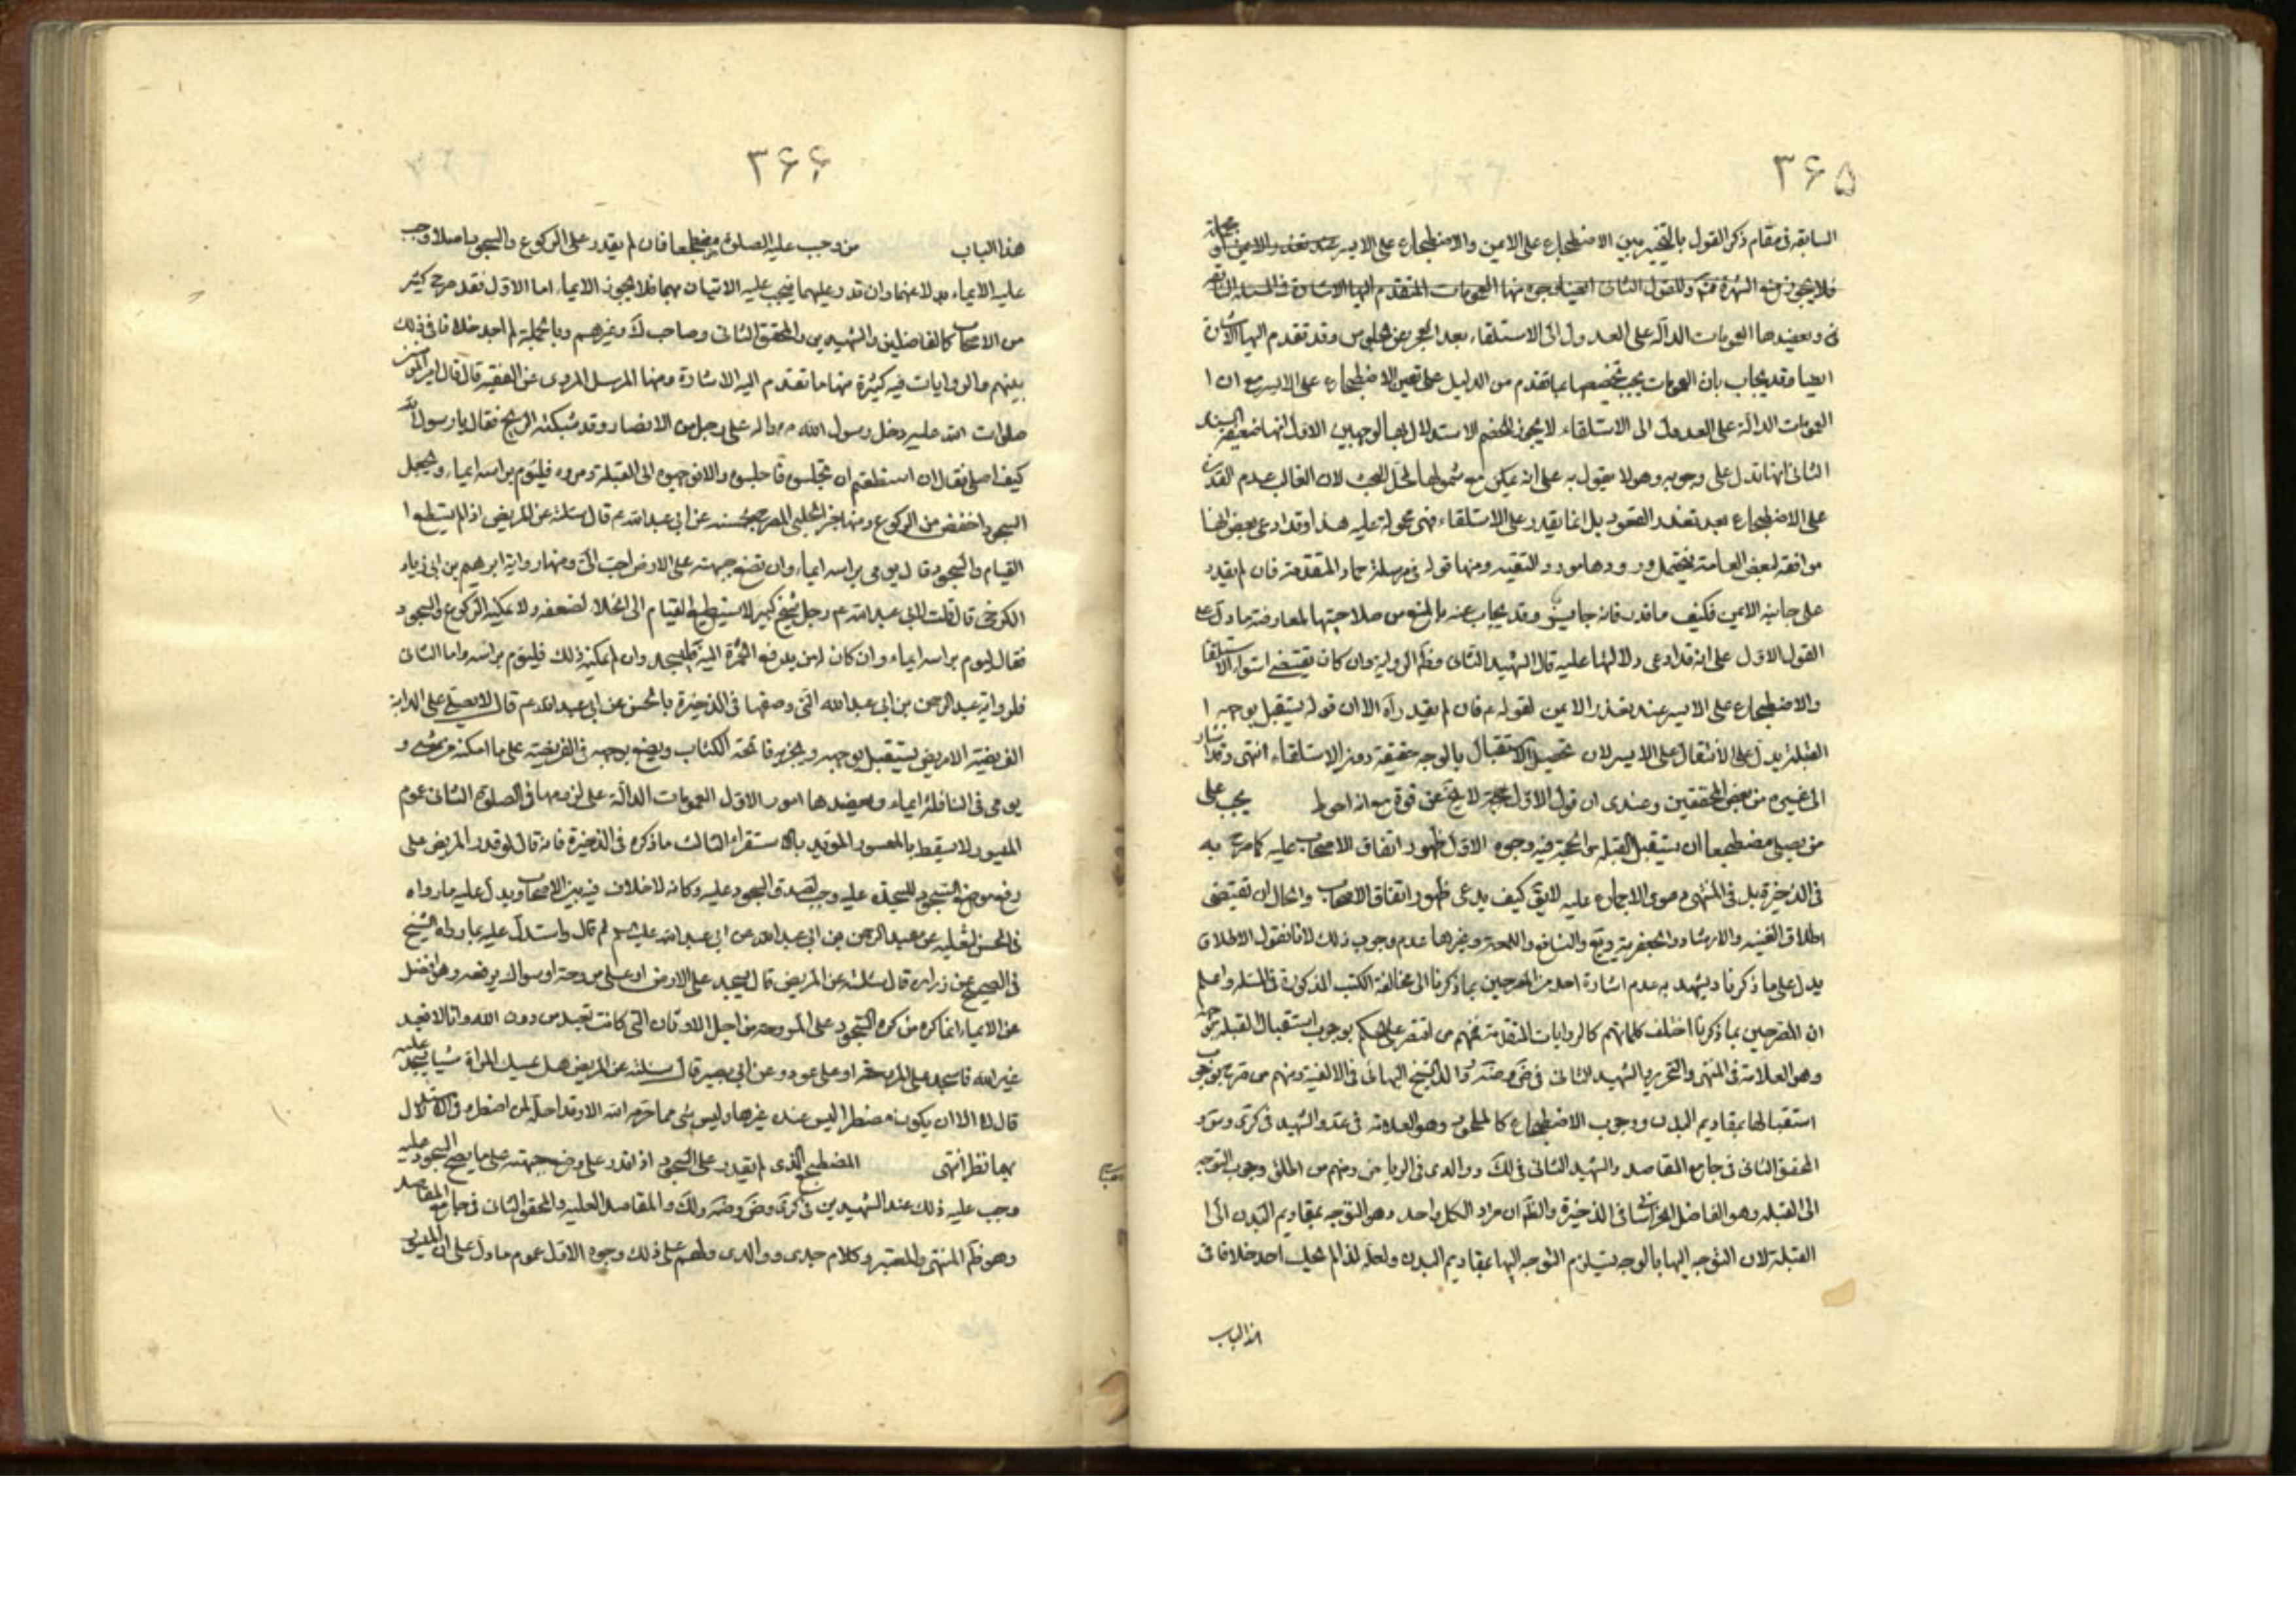 ۳۶۵
السابقة فى مقام ذكر القول بالتخيير بين الاضطجاع على الايمن والاضطجاع على الايسر عند تعذر الايمن
فلا يجوز وللقول الثانى ايضا وجوه منها العمومات المتقدم اليها الاشارة فى المسئلة
و يعضدها العمومات الدالة على العدول الى الاستلقاء بعد العجز عن الجلوس وقد تقدم اليها الاشارة
ايضا وقد يجاب بان العمومات يجب تخصيصها بما تقدم من الدليل على تعين الاضطجاع على الايسر مع ان ا
العمومات الدالة على العدول الى الاستلقاء لا يجوز للخصم الاستدلال بها لوجهين الاول انها ضعيفة السند
الثانى انها تدل على وجوبه وهو لا يقول به على انه يمكن منع شمولها لمحل البحث لان الغالب عدم القدرة
على الاضطجاع بعد تعذر القعود بل انما يقدر على الاستلقاء فهى محمولة عليه هذا وقد ادعى بعض انها
موافقة لبعض العامة فيحتمل ورودها مورد التقيه ومنها قوله فى مرسلة حماد المتقدمة فان لم يقدر
على جانبه الايمن فكيف ما قدر فانه جايز وقد يجاب عنه بالمنع من صلاحيتها لمعارضة ما دل على
القول الاول على انه قد ادعى دلالتها عليه قال الشهيد الثانى وظم الرواية وان كان يقتضى استواء الاستلقاء
والاضطجاع على الايسر عند تعذر الايمن لقوله ع فان لم يقدر آه الا ان قوله يستقبل بوجهه ا
القبلة يدل على الانتقال على الايسر لان تحصيل الاستقبال بالوجه حقيقة دون الاستلقاء انتهى وقد اشار
الى غيره من بعض المحققين وعندى ان قول الاول لا يخ عن قوة مع انه احوط يجب على
من يصلى مضطجعا ان يستقبل القبلة والحجة فيه وجوه الاول ظهور اتفاق الاصحاب عليه كما صرح به
فى الذخيرة بل فى المنتهى دعوى الاجماع عليه لايق كيف يدعى ظهور اتفاق الاصحاب والحال ان تقتضى
اطلاق الغنية والارشاد والجعفرية ويع والنافع واللمعة وغيرها عدم وجوب ذلك لانا نقول الاطلاق
يدل على ما ذكرنا ويشهد به عدم اشارة احد من المصرحين بما ذكرنا الى مخالفة الكتب المذكورة فى المسئلة واعلم
ان المصرحين بما ذكرنا اختلف كلماتهم كالروايات المتقدمة فمنهم من اقتصر على الحكم بوجوب استقبال القبلة بوجهه
وهو العلامة فى المنتهى والتحرير والشهيد الثانى فى ض وضه ووالد الشيخ البهائى فى الالفية ومنهم من صرح بوجوب
استقبالها بمقاديم البدن ووجوب الاضطجاع كالملحود وهو العلامة فى عد والشهيد فى كرى وس و
المحقق الثانى فى جامع المقاصد والشهيد الثانى فى لك ووالدى فى الرياض ومنهم من اطلق وجوب التوجه
الى القبلة وهو الفاضل الخراسانى فى الذخيرة والظم ان مراد الكل واحد وهو التوجه بمقاديم البدن الى ا
القبلة لان التوجه اليها بالوجه يستلزم التوجه اليها بمقاديم البدن ولعله لذا لم يحك احد خلافا فى
هذا الباب
۳۶۶
هذا الباب من وجب عليه الصلوة مضطجعا فان لم يقدر على الركوع والسجود اصلا وجب
عليه الايماء بدلا عنهما وان قدر عليهما فيجب عليه الاتيان بهما فلا يجوز الايماء اما الاول فقد صرح كثير
من الاصحاب كالفاضلين والشهيدين والمحقق الثانى وصاحب لك وغيرهم وبالجملة لم اجد خلافا فى ذلك
بينهم والروايات فيه كثيرة منها ما تقدم اليه الاشارة ومنها المرسل المروى عن الفقيه قال قال امير المؤمنين
صلوات الله عليه دخل رسول الله ص واله على رجل من الانصار وقد شبكته الريح فقال يا رسول الله
كيف اصلى فقال ان استطعتم ان تجلسوه فاجلسوه والا فوجهوه الى القبلة ومروه فليؤم براسه ايماء ويجعل
السجود اخفض من الركوع ومنها خبر الحلبى عن ابى عبد الله ع قال سئلته عن المريض اذا لم يستطع ا
القيام والسجود قال يومى براسه ايماء وان تضع جبهته على الارض احب الى ومنها رواية ابرهيم بن ابى زياد
الكرخى قال قلت لابى عبد الله ع رجل شيخ كبير لا يستطيع القيام الى الخلاء لضعفه ولا يمكنه الركوع والسجود
فقال ليوم براسه ايماء وان كان له من يرفع الخمرة اليه فليسجد وان لم يمكنه ذلك فليؤم براسه واما الثانى
فلرواية عبد الرحمن بن ابى عبد الله التى وصفها فى الذخيرة بالحسن عن ابى عبد الله ع قال لا يصلى على الدابة
الفريضة الا مريض يستقبل بوجهه ويجزيه فاتحة الكتاب ويضع بوجهه فى الفريضة على ما امكنه من شئ و
يومى فى النافلة ايماء ويعضدها امور الاول العمومات الدالة على لزومها فى الصلوة الثانى عموم
الميسور لا يسقط بالمعسور المؤيد بالاستقراء الثالث ما ذكره فى الذخيرة فانه قال لو قدر المريض على
رفع موضع السجود للسجدة عليه وجب لصدق السجود عليه وكانه لا خلاف فيه بين الاصحاب ويدل عليه ما رواه
فى الحسن عن عبد الرحمن بن ابى عبد الله عن ابى عبد الله عليه السلم ثم قال واستدل عليه بما رواه الشيخ
فى الصحيح عن زرارة قال سئلته عن المريض قال يسجد على الارض او على مروحة او سواك يرفعه وهو افضل
من الايماء انما كره من كره السجود على المروحة من اجل الاوثان التى كانت تعبد من دون الله وانا لا نعبد
غير الله فاسجد على المروحة او على عود وعن ابى بصير قال سئلته عن المريض هل تمسك المراة شيئا يسجد عليه
قال لا الا ان يكون مضطرا ليس عنده غيرها وليس شئ مما حرم الله الا وقد احله لمن اضطر وفى الاستدلال
بها نظر انتهى المضطجع الذى لم يقدر على السجود اذا قدر على وضع جبهته على ما يصح السجود عليه
وجب عليه ذلك عند الشهيدين فى كرى وض وضه ولك والمقاصد العلية والمحقق الثانى فى جامع المقاصد
وهو ظم المنتهى والمعتبر وكلام جدى ووالدى ولهم على ذلك وجوه الاول عموم ما دل على ان الميسور